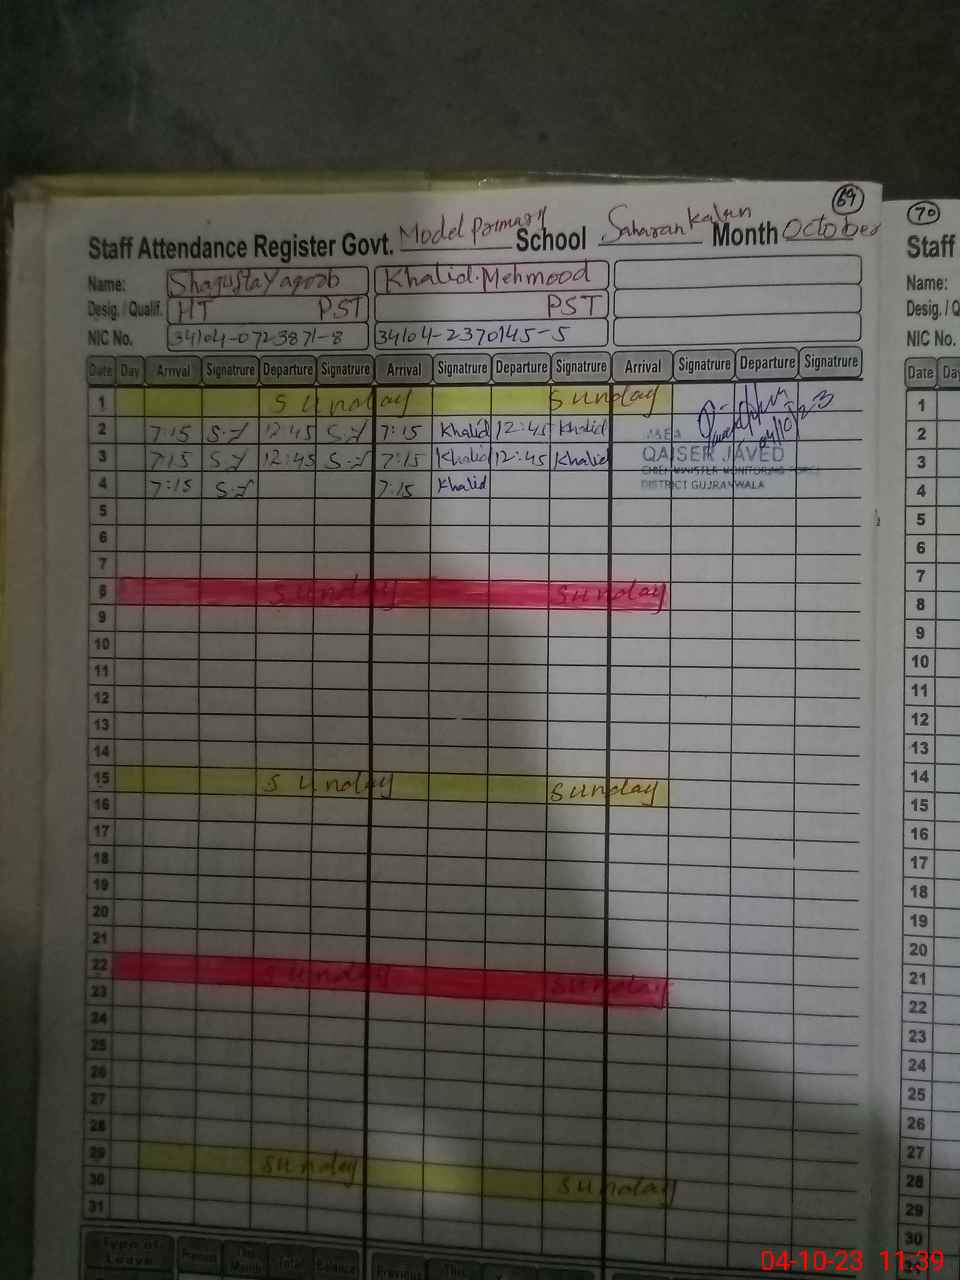 69
70
Staff Attendance Register Govt. Model Primary School Saharan Kalan Month October
Name: Shagufta Yaqoob Khalid. Mehmood
Desig. / Qualif. HT PST PST
NIC No. 34104-0723871-8 34104-2370145-5
Date Day Arrival Signatrure Departure Signatrure Arrival Signatrure Departure Signatrure Arrival Signatrure Departure Signatrure
1 Sunday Sunday
2 7:15 S.Y 12:45 S.Y 7:15 Khalid 12:45 Khalid
3 7:15 S.Y 12:45 S.Y 7:15 Khalid 12:45 Khalid
4 7:15 S.Y 7:15 Khalid
04/10/23
M&EA
QAISER JAVED
CHIEF MINISTER MONITORING FORCE
DISTRICT GUJRANWALA
5
6
7
8 Sunday Sunday
9
10
11
12
13
14
15 Sunday Sunday
16
17
18
19
20
21
22 Sunday Sunday
23
24
25
26
27
28
29 Sunday Sunday
30
31
Type of Leave Previous This Month Total Balance Previous This
Staff
Name:
Desig. / Q
NIC No.
Date Day
1
2
3
4
5
6
7
8
9
10
11
12
13
14
15
16
17
18
19
20
21
22
23
24
25
26
27
28
29
30
04-10-23 11:39